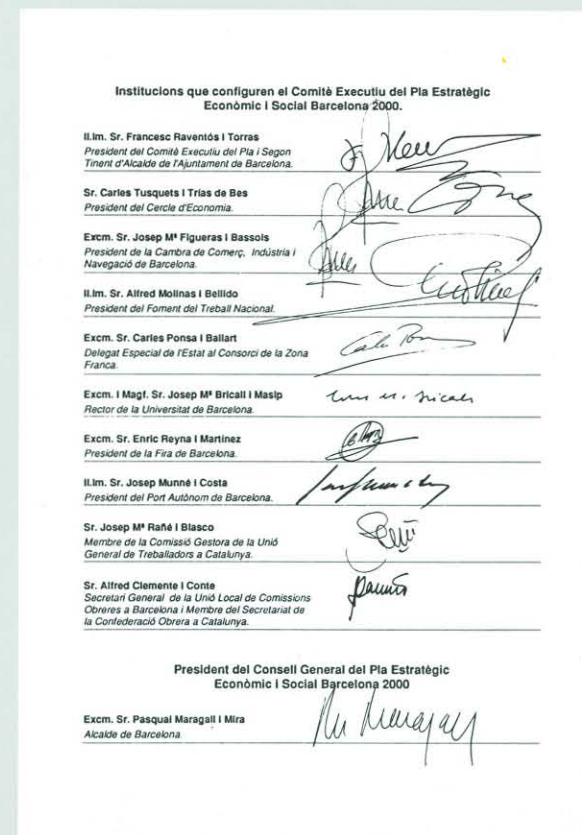 Institucions que configuren el Comitè Executiu del Pla Estratègic
Econòmic i Social Barcelona 2000.
Il.lm. Sr. Francesc Raventós i Torras
President del Comitè Executiu del Pla i Segon
Tinent d'Alcalde de l'Ajuntament de Barcelona.
Sr. Carles Tusquets i Trias de Bes
President del Cercle d'Economia.
Excm. Sr. Josep Mª Figueras i Bassols
President de la Cambra de Comerç, Indústria i
Navegació de Barcelona.
Il.lm. Sr. Alfred Molinas i Bellido
President del Foment del Treball Nacional.
Excm. Sr. Carles Ponsa i Ballart
Delegat Especial de l'Estat al Consorci de la Zona
Franca.
Excm. i Magf. Sr. Josep Mª Bricall i Masip
Rector de la Universitat de Barcelona.
Excm. Sr. Enric Reyna i Martinez
President de la Fira de Barcelona.
Il.lm. Sr. Josep Munné i Costa
President del Port Autònom de Barcelona.
Sr. Josep Mª Rañé i Blasco
Membre de la Comissió Gestora de la Unió
General de Treballadors a Catalunya.
Sr. Alfred Clemente i Conte
Secretari General de la Unió Local de Comissions
Obreres a Barcelona i Membre del Secretariat de
la Confederació Obrera a Catalunya.
President del Consell General del Pla Estratègic
Econòmic i Social Barcelona 2000
Excm. Sr. Pasqual Maragall i Mira
Alcalde de Barcelona